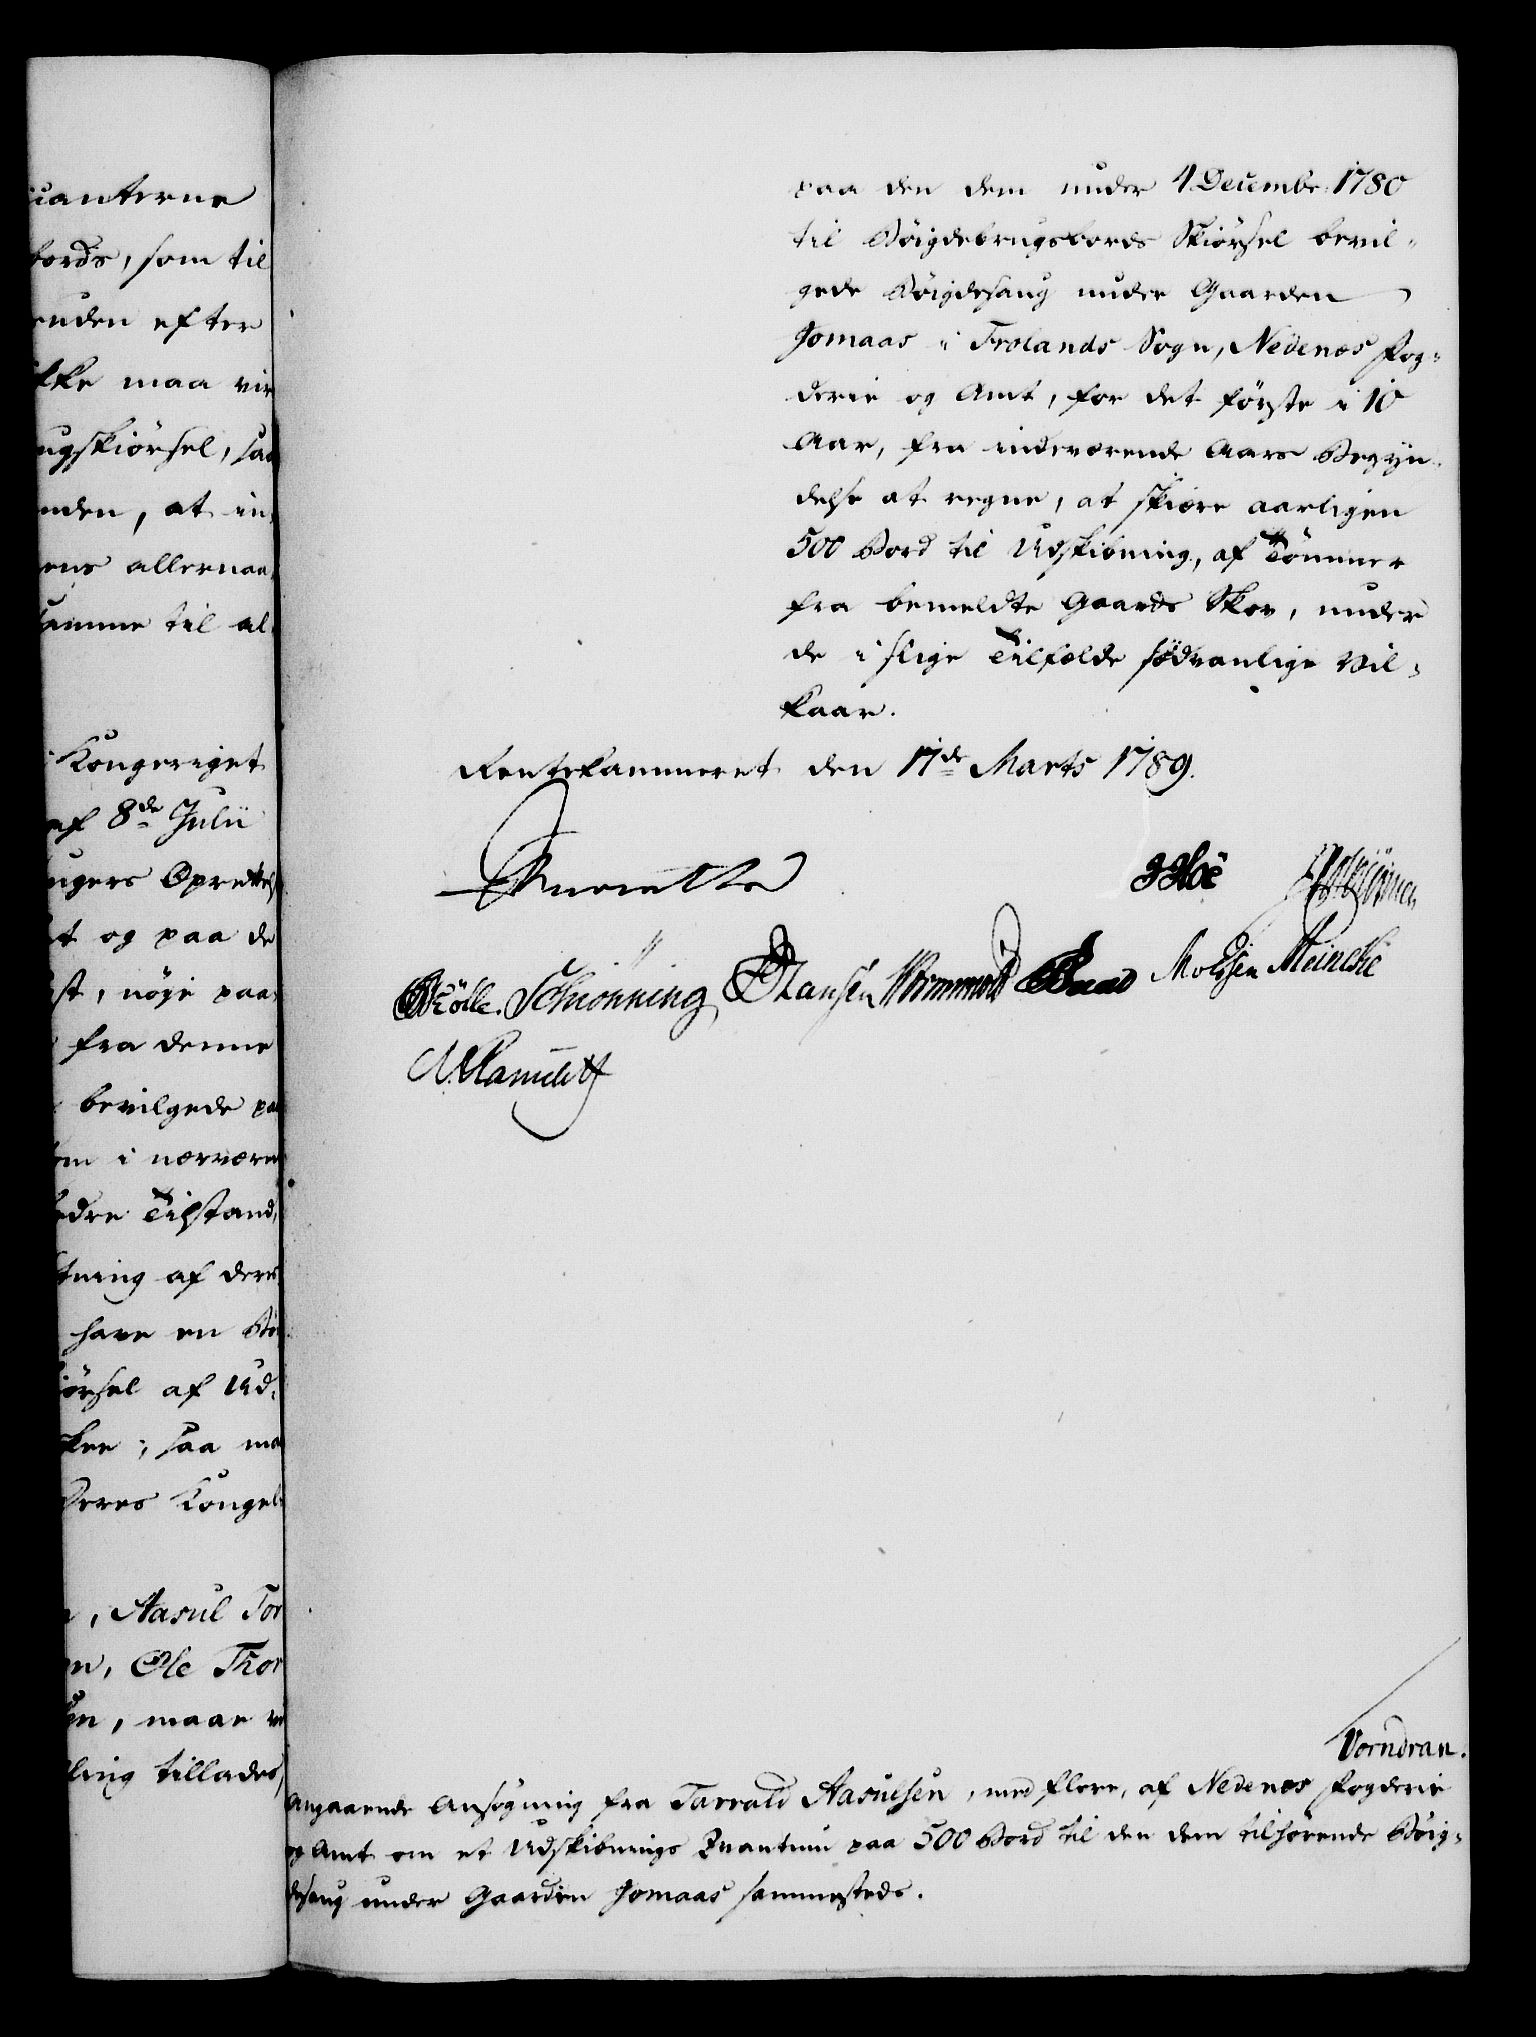 uanterne
bords, som til
enden efter
ikke maa vir
ugskiørsel, saa
nden, at in
ens allernaa
samme til al
Kongeriget
af 8de Julii
ugers Oprettels
t og paa de
st, nøye paa
fra denne
bevilgede paa
om i nærværen
edre Tilstand,
tning af deres
have en Bö
iørsel af Ud-
ker; saa ma
Deres Kongel
n, Aasul Tor
n, Ole Thor
en, maae ved
ling tillades,
paa den dem under 4 Decembr: 1780
til Böigdebrugsbords Skiörsel bevil-
gede Böigdesaug under Gaarden
Jomaas i Frolands Sogn, Nedenæs Fog-
derie og Amt, for det förste i 10
Aar, fra indeværende Aars Begyn-
delse at regne, at skiære aarligen
500 Bord til Udskibning, af Tömmer
fra bemeldte Gaards Skov, under
de i slige Tilfælde sædvanlige Vil-
kaar.
Rentekammeret den 17de Marts 1789.
JHoë
Schiönning Hansen Wormskiold Baad Moldsen Meincke
Vorndran.
Angaaende Ansögning fra Tarrald Aasulsen, med flere, af Nedenæs Fogderie
og Amt om et Udskibnings Qvantum paa 500 Bord til den dem tilhörende Böig-
desaug under Gaarden Jomaas sammesteds.